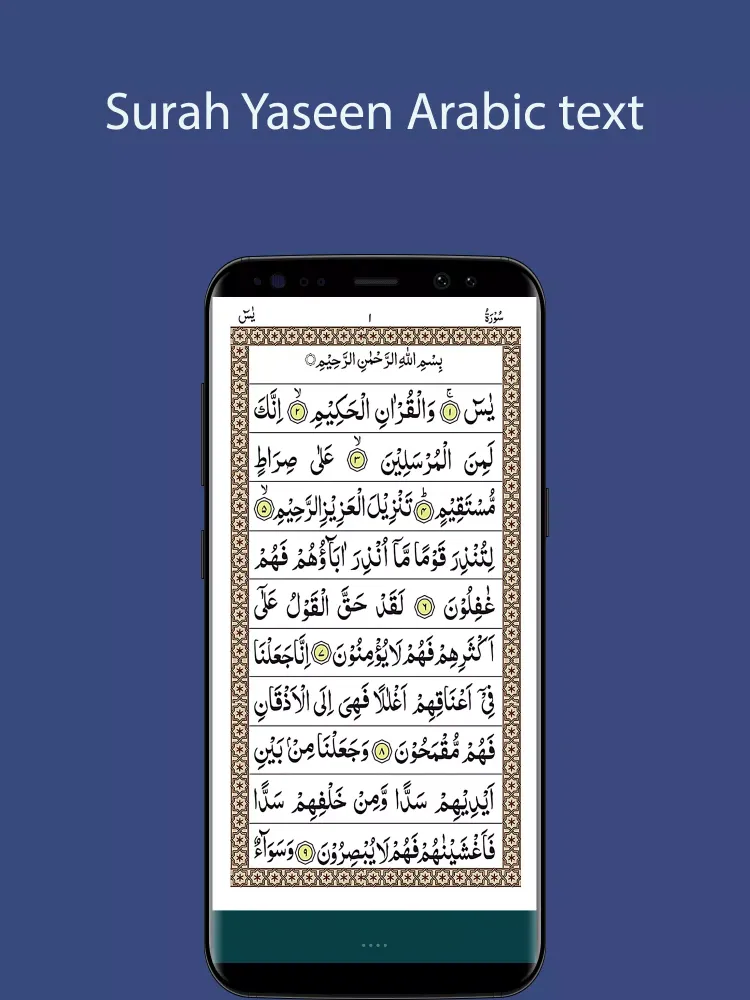 Surah Yaseen Arabic text
سُوْرَةُ ١ يٰسٓ
بِسْمِ اللّٰهِ الرَّحْمٰنِ الرَّحِيْمِ
يٰسٓ ۚ﴿١﴾ وَالْقُرْاٰنِ الْحَكِيْمِ ۙ﴿٢﴾ اِنَّكَ
لَمِنَ الْمُرْسَلِيْنَ ۙ﴿٣﴾ عَلٰى صِرَاطٍ
مُّسْتَقِيْمٍ ؕ﴿۴﴾ تَنْزِيْلَ الْعَزِيْزِ الرَّحِيْمِ ۙ﴿۵﴾
لِتُنْذِرَ قَوْمًا مَّاۤ اُنْذِرَ اٰبَآؤُهُمْ فَهُمْ
غٰفِلُوْنَ ﴿۶﴾ لَقَدْ حَقَّ الْقَوْلُ عَلٰۤى
اَكْثَرِهِمْ فَهُمْ لَا يُؤْمِنُوْنَ ﴿۷﴾ اِنَّا جَعَلْنَا
فِيْۤ اَعْنَاقِهِمْ اَغْلٰلًا فَهِيَ اِلَى الْاَذْقَانِ
فَهُمْ مُّقْمَحُوْنَ ﴿۸﴾ وَجَعَلْنَا مِنْۢ بَيْنِ
اَيْدِيْهِمْ سَدًّا وَّمِنْ خَلْفِهِمْ سَدًّا
فَاَغْشَيْنٰهُمْ فَهُمْ لَا يُبْصِرُوْنَ ﴿۹﴾ وَسَوَآءٌ